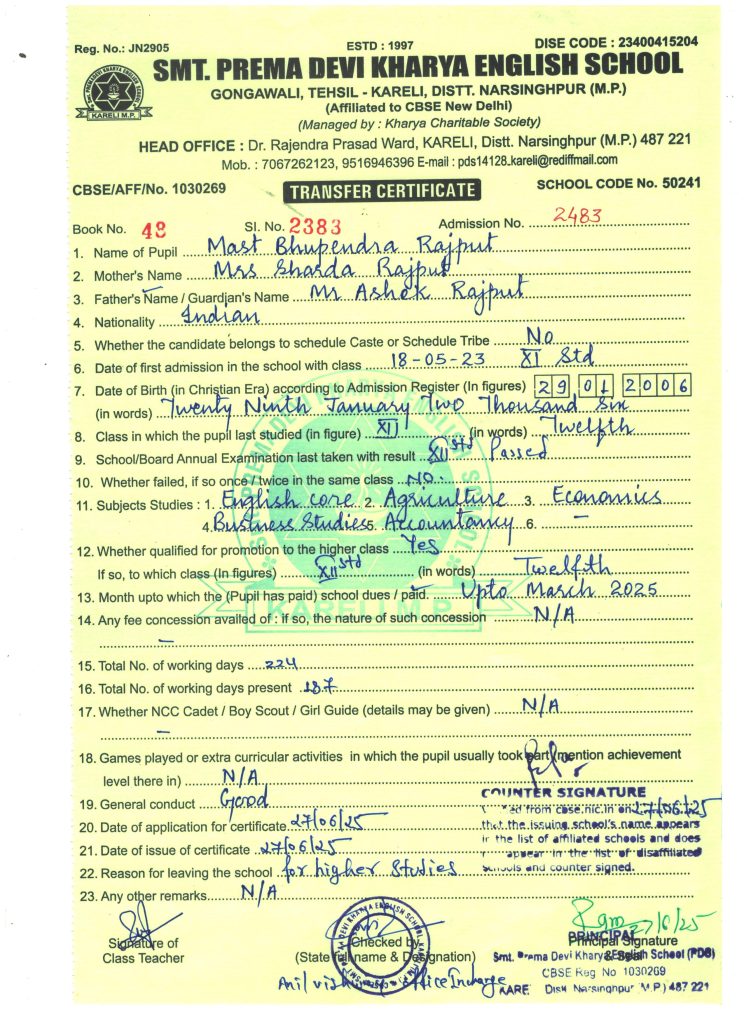 Reg. No.: JN2905 ESTD : 1997 DISE CODE : 23400415204
SMT. PREMA DEVI KHARYA ENGLISH SCHOOL
GONGAWALI, TEHSIL - KARELI, DISTT. NARSINGHPUR (M.P.)
(Affiliated to CBSE New Delhi)
(Managed by : Kharya Charitable Society)
KARELI M.P.
HEAD OFFICE : Dr. Rajendra Prasad Ward, KARELI, Distt. Narsinghpur (M.P.) 487 221
Mob. : 7067262123, 9516946396 E-mail : pds14128.kareli@rediffmail.com
CBSE/AFF/No. 1030269 TRANSFER CERTIFICATE SCHOOL CODE No. 50241
Book No. 48 Sl. No. 2383 Admission No. 2483
1. Name of Pupil Mast Bhupendra Rajput
2. Mother's Name Mrs Sharda Rajput
3. Father's Name / Guardian's Name Mr Ashok Rajput
4. Nationality Indian
5. Whether the candidate belongs to schedule Caste or Schedule Tribe No
6. Date of first admission in the school with class 18-05-23 XI Std
7. Date of Birth (in Christian Era) according to Admission Register (In figures) 29 01 2006
(in words) Twenty Ninth January Two Thousand Six
8. Class in which the pupil last studied (in figure) XII (in words) Twelfth
9. School/Board Annual Examination last taken with result XII Std Passed
10. Whether failed, if so once / twice in the same class NO.
11. Subjects Studies : 1. English core 2. Agriculture 3. Economics
4. Business Studies 5. Accountancy 6. –
12. Whether qualified for promotion to the higher class Yes
If so, to which class (In figures) XII Std (in words) Twelfth
13. Month upto which the (Pupil has paid) school dues / paid. Upto March 2025
KARELI M.P.
14. Any fee concession availed of : if so, the nature of such concession N/A
–
15. Total No. of working days 224
16. Total No. of working days present 187
17. Whether NCC Cadet / Boy Scout / Girl Guide (details may be given) N/A
–
18. Games played or extra curricular activities in which the pupil usually took part (mention achievement
level there in) N/A
COUNTER SIGNATURE
19. General conduct Good
ed from cbse.nic.in on 27/06/25
20. Date of application for certificate 27/06/25
that the issuing school's name appears
in the list of affiliated schools and does
21. Date of issue of certificate 27/06/25
appear in the list of disaffiliated
22. Reason for leaving the school for higher Studies
schools and counter signed.
23. Any other remarks N/A
27/6/25
Signature of Class Teacher
Checked by
(State full name & Designation)
Principal Signature
& Seal
PRINCIPAL
Smt. Prema Devi Kharya English School (PDS)
CBSE Reg No 1030269
KARE Distt Narsinghpur (M.P.) 487 221
Office Incharge